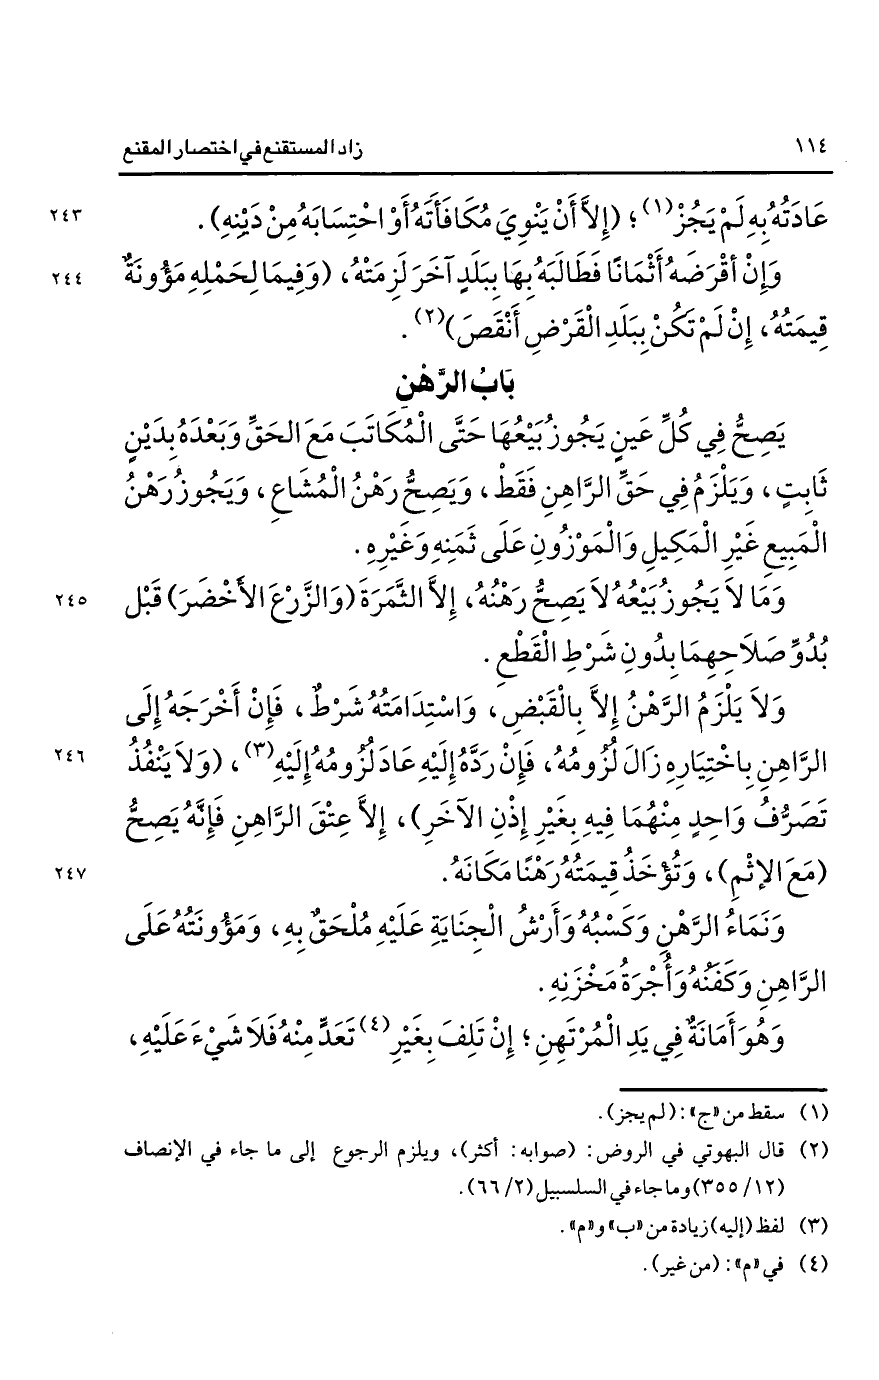 ١١٤ زاد المستقنع في اختصار المقنع
عَادَتُهُ بِهِ لَمْ يَجُزْ(١)؛ (إِلاَّ أَنْ يَنْوِيَ مُكَافَأَتَهُ أَوْ احْتِسَابَهُ مِنْ دَيْنِهِ). ٢٤٣
وَإِنْ أَقْرَضَهُ أَثْمَانًا فَطَالَبَهُ بِهَا بِبَلَدٍ آخَرَ لَزِمَتْهُ، (وَفِيمَا لِحَمْلِهِ مَؤُونَةٌ ٢٤٤
قِيمَتُهُ، إِنْ لَمْ تَكُنْ بِبَلَدِ الْقَرْضِ أَنْقَصَ)(٢).
بَابُ الرَّهْنِ
يَصِحُّ فِي كُلِّ عَينٍ يَجُوزُ بَيْعُهَا حَتَّى الْمُكَاتَبَ مَعَ الحَقِّ وَبَعْدَهُ بِدَيْنٍ
ثَابِتٍ، وَيَلْزَمُ فِي حَقِّ الرَّاهِنِ فَقَطْ، وَيَصِحُّ رَهْنُ الْمُشَاعِ، وَيَجُوزُ رَهْنُ
الْمَبِيعِ غَيْرِ الْمَكِيلِ وَالْمَوْزُونِ عَلَى ثَمَنِهِ وَغَيْرِهِ.
وَمَا لاَ يَجُوزُ بَيْعُهُ لاَ يَصِحُّ رَهْنُهُ، إِلاَّ الثَّمَرَةَ (وَالزَّرْعَ الأَخْضَرَ) قَبْلَ ٢٤٥
بُدُوِّ صَلاَحِهِمَا بِدُونِ شَرْطِ الْقَطْعِ.
وَلاَ يَلْزَمُ الرَّهْنُ إِلاَّ بِالْقَبْضِ، وَاسْتِدَامَتُهُ شَرْطٌ، فَإِنْ أَخْرَجَهُ إِلَى
الرَّاهِنِ بِاخْتِيَارِهِ زَالَ لُزُومُهُ، فَإِنْ رَدَّهُ إِلَيْهِ عَادَ لُزُومُهُ إِلَيْهِ(٣)، (وَلاَ يَنْفُذُ ٢٤٦
تَصَرُّفُ وَاحِدٍ مِنْهُمَا فِيهِ بِغَيْرِ إِذْنِ الآخَرِ)، إِلاَّ عِتْقَ الرَّاهِنِ فَإِنَّهُ يَصِحُّ
(مَعَ الإِثْمِ)، وَتُؤْخَذُ قِيمَتُهُ رَهْنًا مَكَانَهُ. ٢٤٧
وَنَمَاءُ الرَّهْنِ وَكَسْبُهُ وَأَرْشُ الْجِنَايَةِ عَلَيْهِ مُلْحَقٌ بِهِ، وَمَؤُونَتُهُ عَلَى
الرَّاهِنِ وَكَفَنُهُ وَأُجْرَةُ مَخْزَنِهِ.
وَهُوَ أَمَانَةٌ فِي يَدِ الْمُرْتَهِنِ؛ إِنْ تَلِفَ بِغَيْرِ(٤) تَعَدٍّ مِنْهُ فَلَا شَيْءَ عَلَيْهِ،
(١) سقط من «ج»: (لم يجز).
(٢) قال البهوتي في الروض: (صوابه: أكثر)، ويلزم الرجوع إلى ما جاء في الإنصاف
(١٢/ ٣٥٥) وما جاء في السلسبيل (٢/ ٦٦).
(٣) لفظ (إليه) زيادة من «ب» و«م».
(٤) في «م»: (من غير).